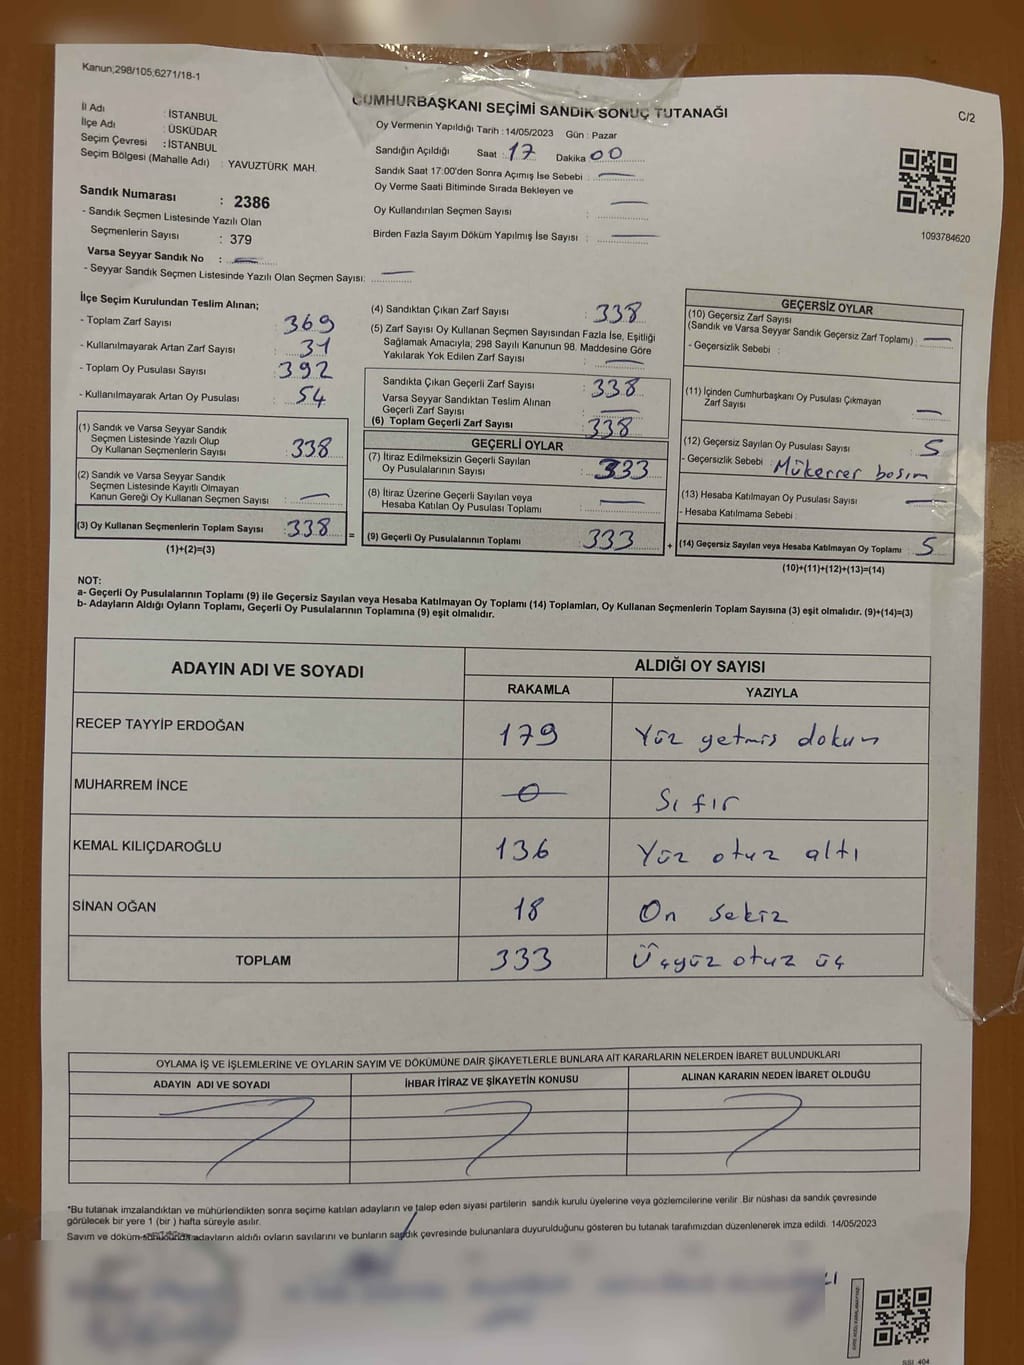 Kanun;298/105;6271/18-1
CUMHURBAŞKANI SEÇİMİ SANDIK SONUÇ TUTANAĞI
C/2
İl Adı : İSTANBUL
İlçe Adı : ÜSKÜDAR
Seçim Çevresi : İSTANBUL
Seçim Bölgesi (Mahalle Adı) : YAVUZTÜRK MAH.
Oy Vermenin Yapıldığı Tarih : 14/05/2023 Gün : Pazar
Sandığın Açıldığı Saat : 17 Dakika 00
Sandık Saat 17:00'den Sonra Açımış İse Sebebi : —
Oy Verme Saati Bitiminde Sırada Bekleyen ve
Oy Kullandırılan Seçmen Sayısı : —
Birden Fazla Sayım Döküm Yapılmış İse Sayısı : —
1093784620
Sandık Numarası : 2386
- Sandık Seçmen Listesinde Yazılı Olan
Seçmenlerin Sayısı : 379
Varsa Seyyar Sandık No : —
- Seyyar Sandık Seçmen Listesinde Yazılı Olan Seçmen Sayısı: —
İlçe Seçim Kurulundan Teslim Alınan;
- Toplam Zarf Sayısı : 369
- Kullanılmayarak Artan Zarf Sayısı : 31
- Toplam Oy Pusulası Sayısı : 392
- Kullanılmayarak Artan Oy Pusulası : 54
(1) Sandık ve Varsa Seyyar Sandık
Seçmen Listesinde Yazılı Olup
Oy Kullanan Seçmenlerin Sayısı : 338
(2) Sandık ve Varsa Seyyar Sandık
Seçmen Listesinde Kayıtlı Olmayan
Kanun Gereği Oy Kullanan Seçmen Sayısı : —
(3) Oy Kullanan Seçmenlerin Toplam Sayısı : 338 =
(1)+(2)=(3)
(4) Sandıktan Çıkan Zarf Sayısı : 338
(5) Zarf Sayısı Oy Kullanan Seçmen Sayısından Fazla İse, Eşitliği
Sağlamak Amacıyla; 298 Sayılı Kanunun 98. Maddesine Göre
Yakılarak Yok Edilen Zarf Sayısı : —
Sandıkta Çıkan Geçerli Zarf Sayısı : 338
Varsa Seyyar Sandıktan Teslim Alınan
Geçerli Zarf Sayısı : —
(6) Toplam Geçerli Zarf Sayısı : 338
GEÇERLİ OYLAR
(7) İtiraz Edilmeksizin Geçerli Sayılan
Oy Pusulalarının Sayısı : 333
(8) İtiraz Üzerine Geçerli Sayılan veya
Hesaba Katılan Oy Pusulası Toplamı : —
(9) Geçerli Oy Pusulalarının Toplamı : 333 +
GEÇERSİZ OYLAR
(10) Geçersiz Zarf Sayısı
(Sandık ve Varsa Seyyar Sandık Geçersiz Zarf Toplamı) : —
- Geçersizlik Sebebi :
(11) İçinden Cumhurbaşkanı Oy Pusulası Çıkmayan
Zarf Sayısı : —
(12) Geçersiz Sayılan Oy Pusulası Sayısı : 5
- Geçersizlik Sebebi : Mükerrer basım
(13) Hesaba Katılmayan Oy Pusulası Sayısı : —
- Hesaba Katılmama Sebebi :
(14) Geçersiz Sayılan veya Hesaba Katılmayan Oy Toplamı : 5
(10)+(11)+(12)+(13)=(14)
NOT:
a- Geçerli Oy Pusulalarının Toplamı (9) ile Geçersiz Sayılan veya Hesaba Katılmayan Oy Toplamı (14) Toplamları, Oy Kullanan Seçmenlerin Toplam Sayısına (3) eşit olmalıdır. (9)+(14)=(3)
b- Adayların Aldığı Oyların Toplamı, Geçerli Oy Pusulalarının Toplamına (9) eşit olmalıdır.
ADAYIN ADI VE SOYADI
ALDIĞI OY SAYISI
RAKAMLA YAZIYLA
RECEP TAYYİP ERDOĞAN 179 Yüz yetmiş dokuz
MUHARREM İNCE 0 Sıfır
KEMAL KILIÇDAROĞLU 136 Yüz otuz altı
SİNAN OĞAN 18 On sekiz
TOPLAM 333 Üçyüz otuz üç
OYLAMA İŞ VE İŞLEMLERİNE VE OYLARIN SAYIM VE DÖKÜMÜNE DAİR ŞİKAYETLERLE BUNLARA AİT KARARLARIN NELERDEN İBARET BULUNDUKLARI
ADAYIN ADI VE SOYADI İHBAR İTİRAZ VE ŞİKAYETİN KONUSU ALINAN KARARIN NEDEN İBARET OLDUĞU
*Bu tutanak imzalandıktan ve mühürlendikten sonra seçime katılan adayların ve talep eden siyasi partilerin sandık kurulu üyelerine veya gözlemcilerine verilir. Bir nüshası da sandık çevresinde
görülecek bir yere 1 (bir ) hafta süreyle asılır.
Sayım ve döküm sonucunda adayların aldığı oyların sayılarını ve bunların sandık çevresinde bulunanlara duyurulduğunu gösteren bu tutanak tarafımızdan düzenlenerek imza edildi. 14/05/2023